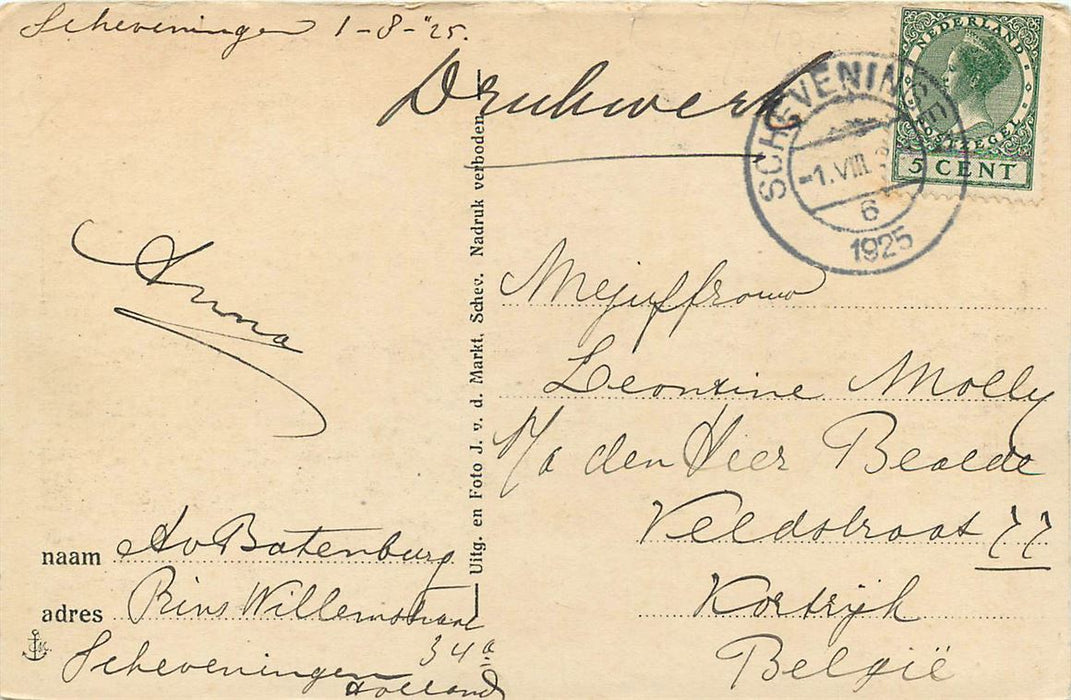 Scheveningen 1-8-'25.
Drukwerk
NEDERLAND
POSTZEGEL
5 CENT
SCHEVENINGEN
-1.VIII
6
1925
Anna
Uitg. en Foto J. v. d. Markt, Schev. Nadruk verboden
Mejuffrouw
Leontine Molly
P/a den Heer
Veldstraat 77
Kortrijk
België
naam A v Batenburg
adres Prins Willemstraat
34a
Scheveningen
Holland